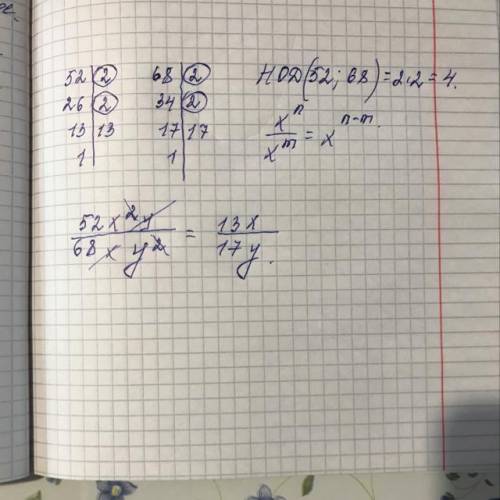 52 | 2   68 | 2   НОД(52; 68) = 2·2 = 4.
26 | 2   34 | 2
13 | 13   17 | 17   x^n / x^m = x^(n-m)
1 |   1 |
52x^2y / 68xy^2 = 13x / 17y.